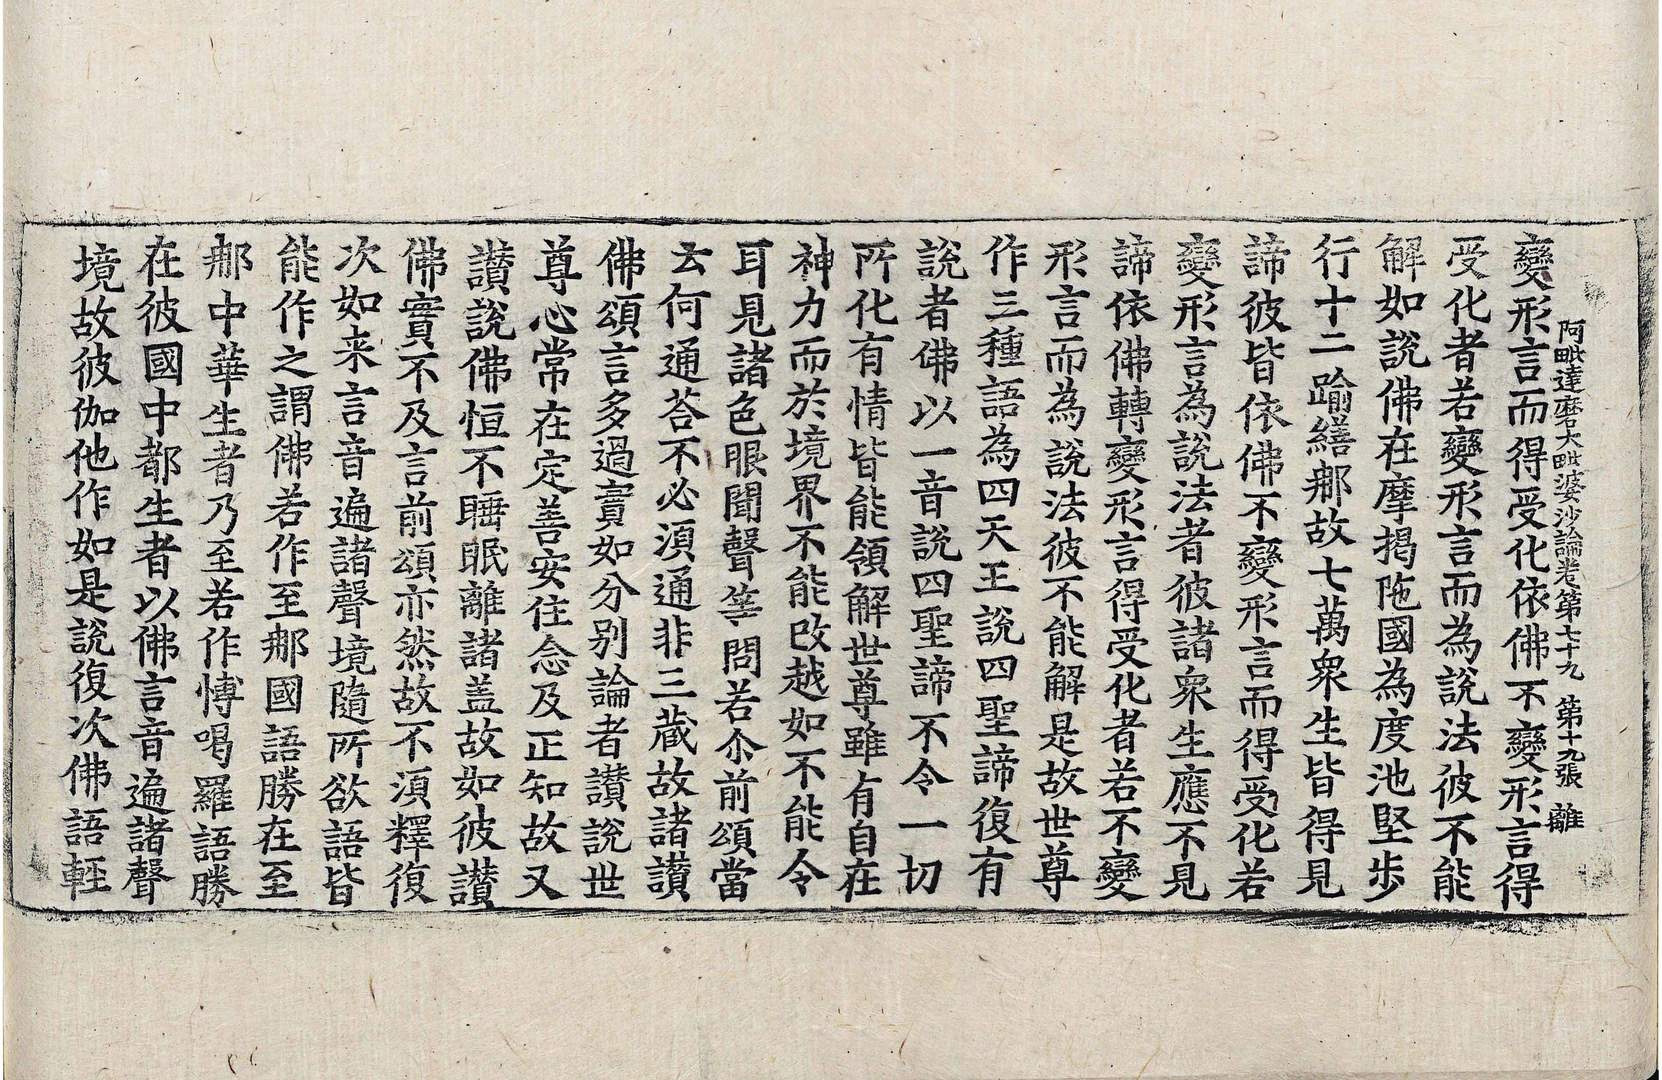 阿毗達磨大毗婆沙論卷第七十九 第十九張 離
變形言而得受化依佛不變形言得
受化者若變形言而為說法彼不能
解如說佛在摩揭陁國為度池堅步
行十二踰繕郍故七萬衆生皆得見
諦彼皆依佛不變形言而得受化若
變形言為說法者彼諸衆生應不見
諦依佛轉變形言得受化者若不變
形言而為說法彼不能解是故世尊
作三種語為四天王說四聖諦復有
說者佛以一音說四聖諦不令一切
所化有情皆能領解世尊雖有自在
神力而於境界不能改越如不能令
耳見諸色眼聞聲等問若尒前頌當
云何通荅不必湏通非三藏故諸讃
佛頌言多過實如分別論者讃說世
尊心常在定善安住念及正知故又
讃說佛恒不睡眠離諸盖故如彼讃
佛實不及言前頌亦然故不湏釋復
次如来言音遍諸聲境隨所欲語皆
能作之謂佛若作至郍國語勝在至
郍中華生者乃至若作愽喝羅語勝
在彼國中都生者以佛言音遍諸聲
境故彼伽他作如是說復次佛語輕